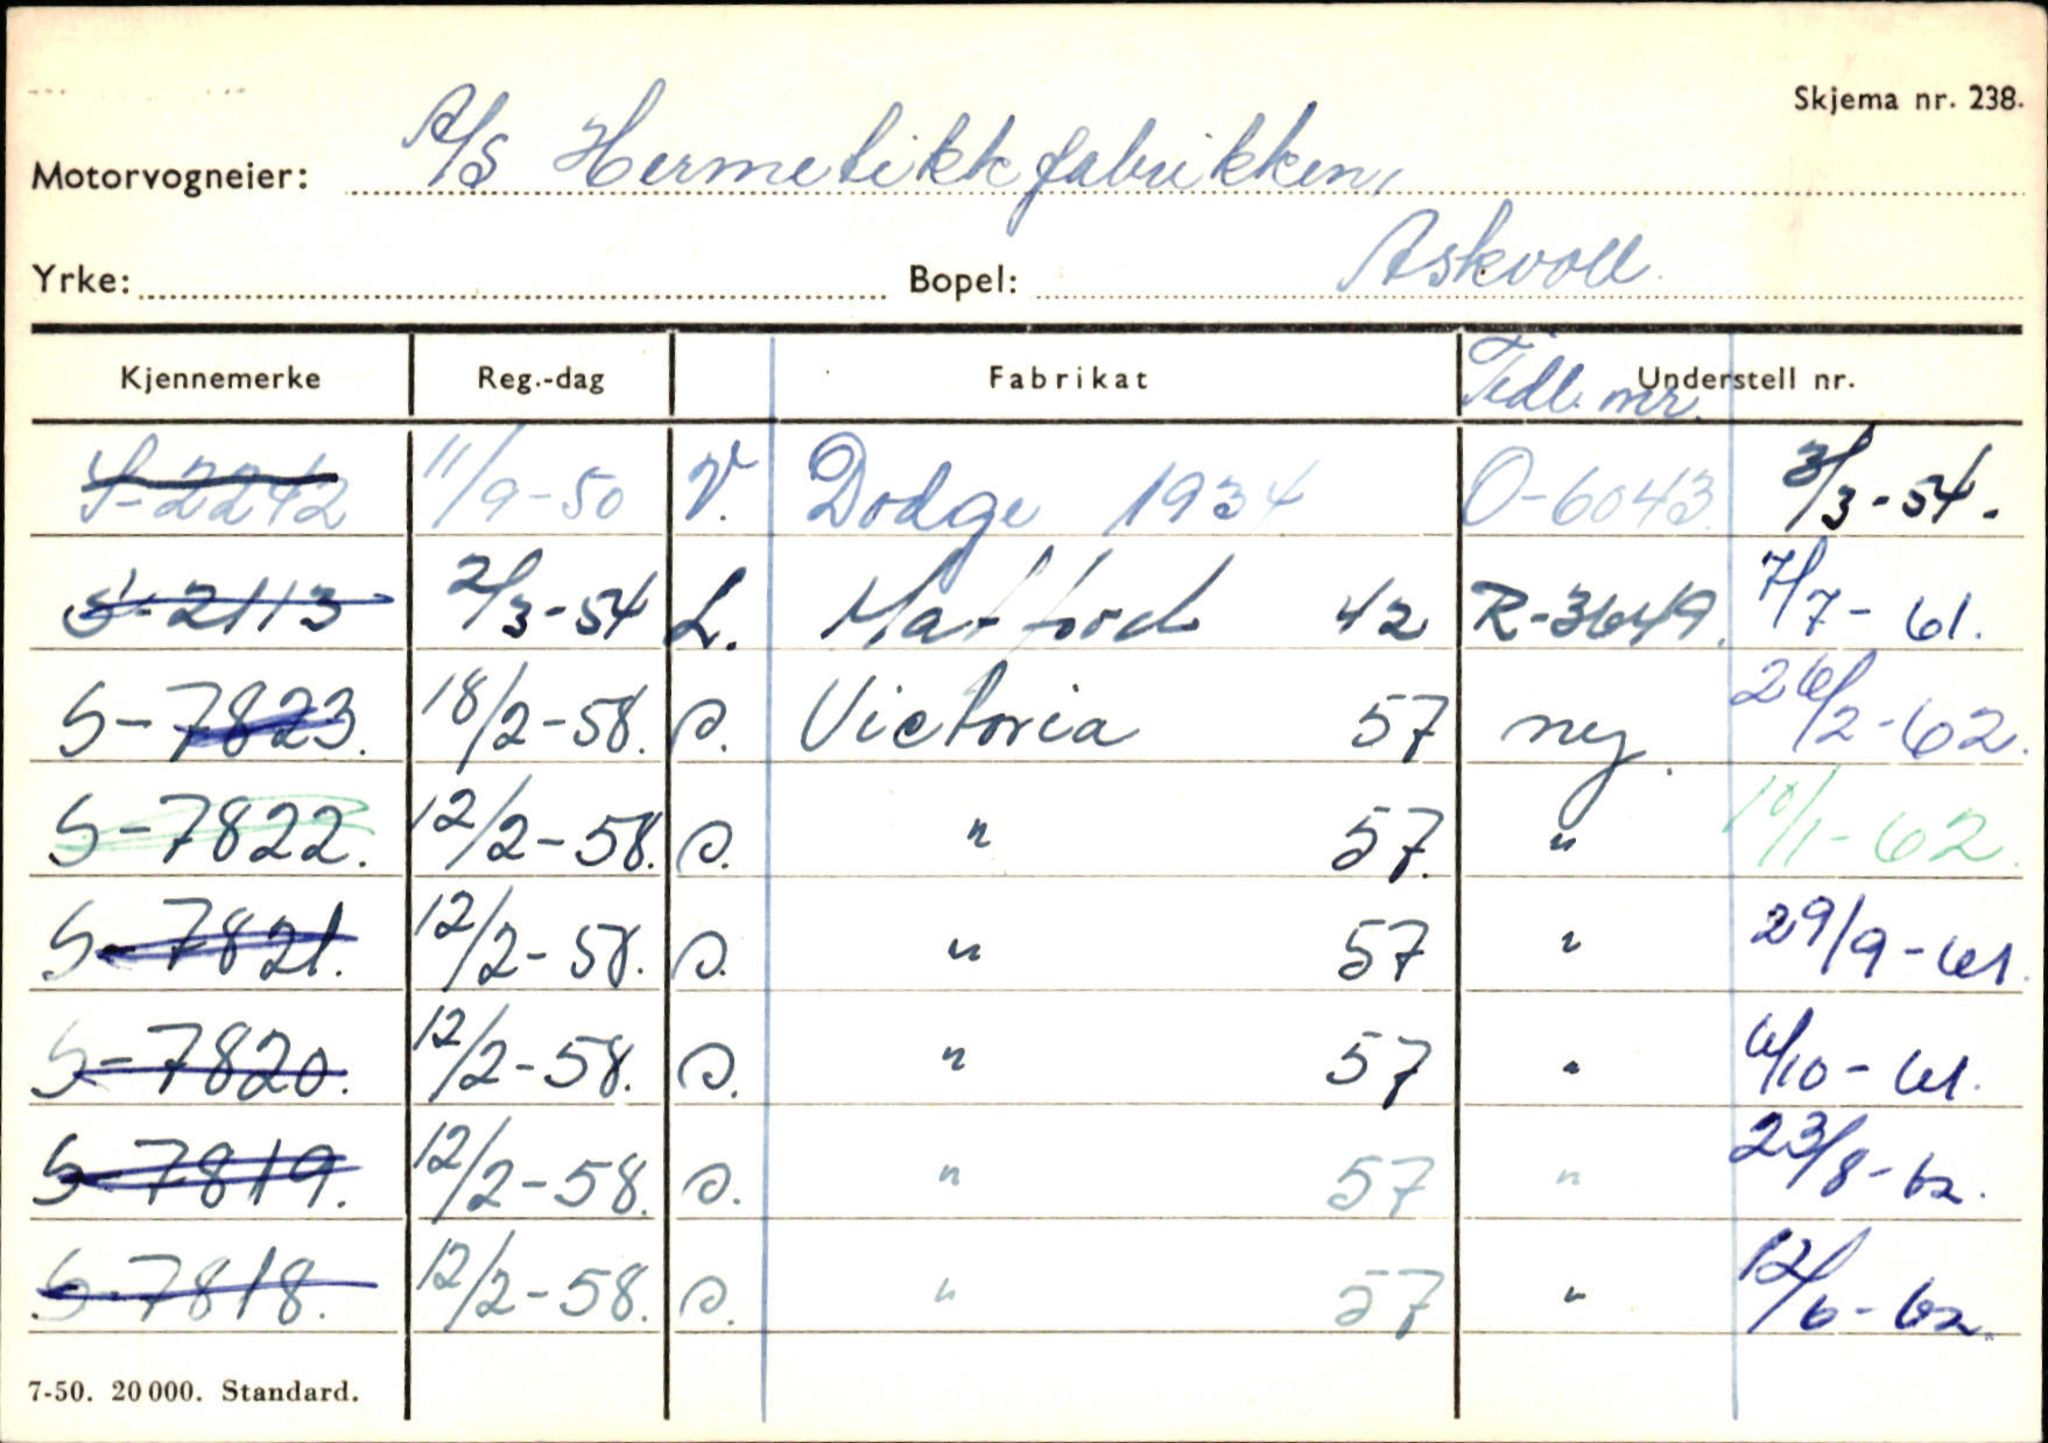 Skjema nr. 238.
Motorvogneier: A/S Hermetikkfabrikken,
Yrke: Bopel: Askvoll.
Kjennemerke Reg.-dag Fabrikat Tidl. nr. Understell nr.
S-2242 11/9-50 V. Dodge 1934 O-6043. 3/3-54.
S-2113 2/3-54 L. Matford 42 R-3649. 7/7-61.
S-7823. 18/2-58. S. Victoria 57 ny. 26/2-62.
S-7822. 12/2-58. S. " 57. " 10/1-62.
S-7821. 12/2-58. S. " 57 " 29/9-61.
S-7820. 12/2-58. S. " 57 " 6/10-61.
S-7819. 12/2-58. S. " 57 " 23/8-62.
S-7818. 12/2-58. S. " 57 " 12/6-62.
7-50. 20 000. Standard.